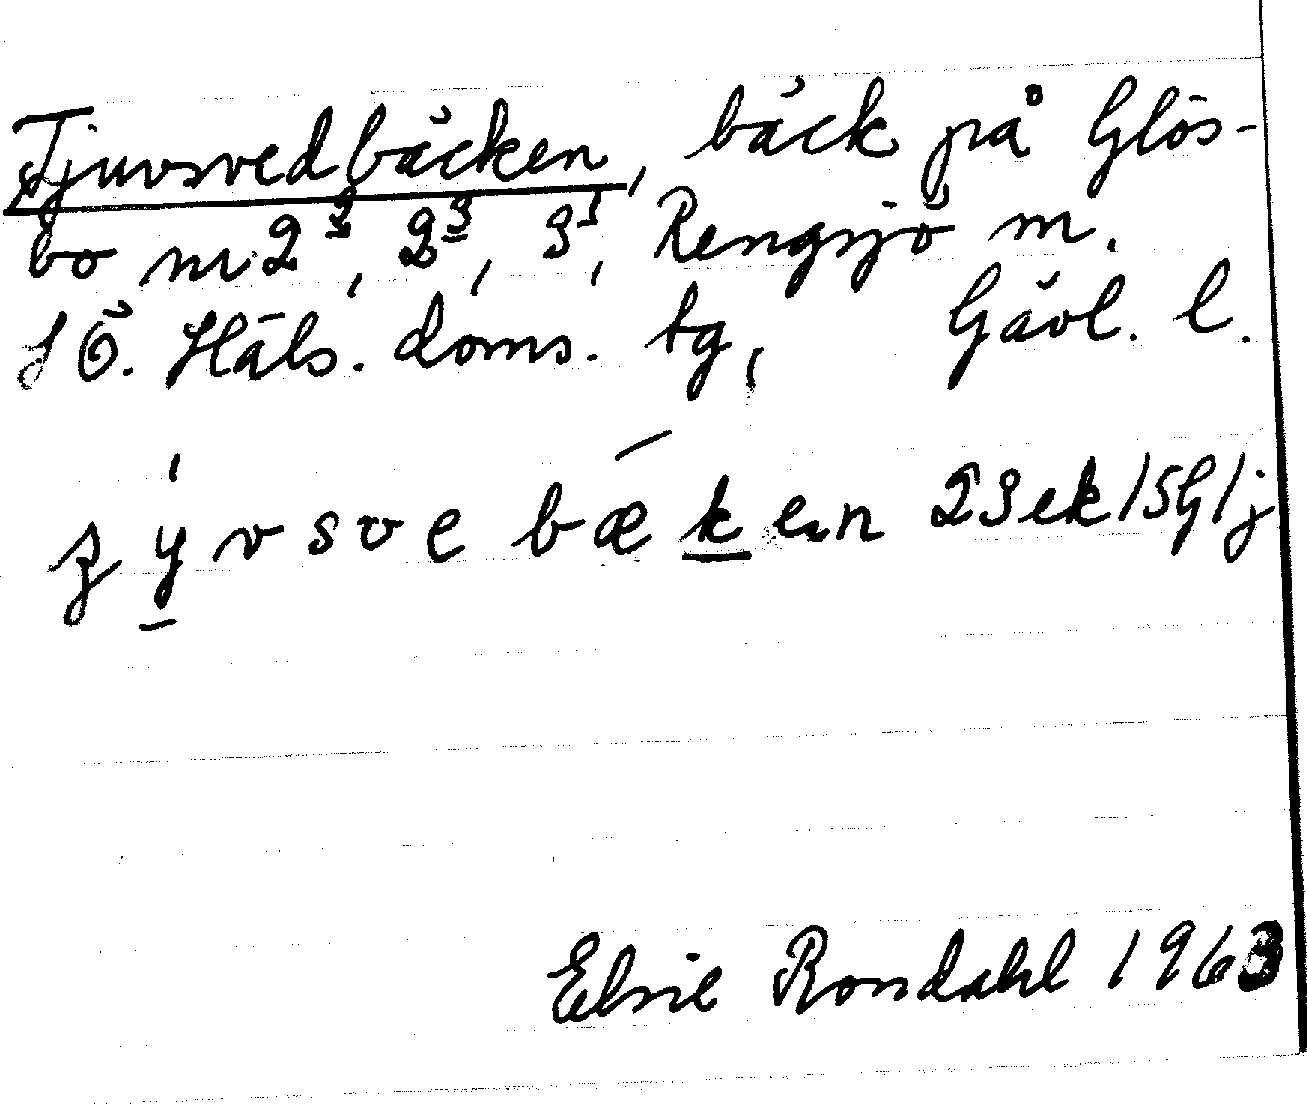 Tjuvsvedbäcken, bäck på Glös-
bo m 2², 2³, 3¹, Rengsjö m.
SÖ. Häls. doms. tg, Gävl. l.
ý v s v e b æ k e n 23 ek/5G/j
Elsie Rondahl 1963